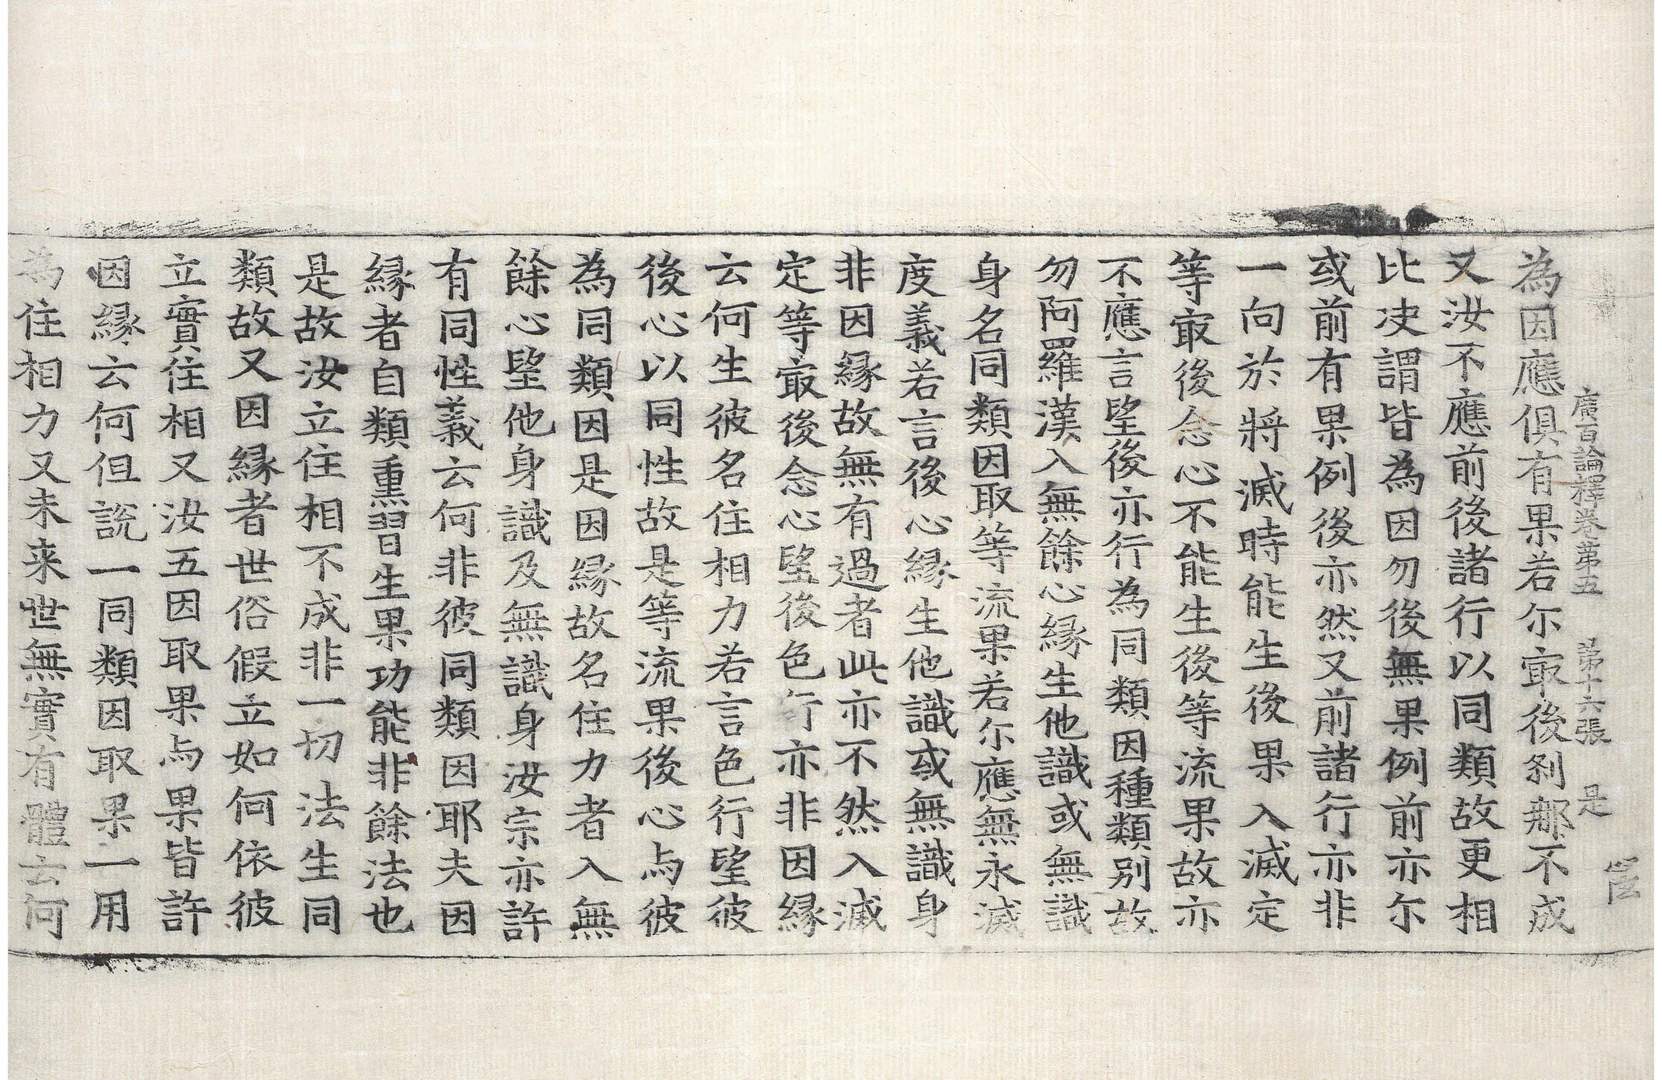 廣百論釋卷第五　第十六張　是
為因應俱有果若尒㝡後刹那不成
又汝不應前後諸行以同類故更相
比决謂皆為因勿後無果例前亦尒
或前有果例後亦然又前諸行亦非
一向於將滅時能生後果入滅定
等㝡後念心不能生後等流果故亦
不應言望後亦行為同類因種類別故
勿阿羅漢入無餘心緣生他識或無識
身名同類因取等流果若尒應無永滅
度義若言後心緣生他識或無識身
非因緣故無有過者此亦不然入滅
定等㝡後念心望後色行亦非因緣
云何生彼名住相力若言色行望彼
後心以同性故是等流果後心与彼
為同類因是因緣故名住力者入無
餘心望他身識及無識身汝宗亦許
有同性義云何非彼同類因耶夫因
緣者自類熏習生果功能非餘法也
是故汝立住相不成非一切法生同
類故又因緣者世俗假立如何依彼
立實住相又汝五因取果与果皆許
因緣云何但說一同類因取果一用
為住相力又未来世無實有體云何